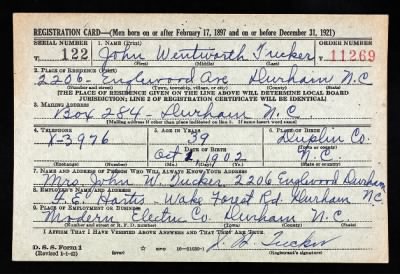 REGISTRATION CARD—(Men born on or after February 17, 1897 and on or before December 31, 1921)
SERIAL NUMBER 1. NAME (Print) ORDER NUMBER
V- 122 John Wentworth Tucker 11269
2. PLACE OF RESIDENCE (Print)
2206 - Englewood Ave Durham N.C
(Number and street) (Town, township, village, or city) (County) (State)
[THE PLACE OF RESIDENCE GIVEN ON THE LINE ABOVE WILL DETERMINE LOCAL BOARD
JURISDICTION; LINE 2 OF REGISTRATION CERTIFICATE WILL BE IDENTICAL]
3. MAILING ADDRESS
Box 284 - Durham N.C
[Mailing address if other than place indicated on line 2. If same insert word same]
4. TELEPHONE 5. AGE IN YEARS 6. PLACE OF BIRTH
39 Duplin Co.
DATE OF BIRTH (Town or county)
X-3976 Oct 1902 N.C.
(Exchange) (Number) (Mo.) (Day) (Yr.) (State or country)
7. NAME AND ADDRESS OF PERSON WHO WILL ALWAYS KNOW YOUR ADDRESS
Mrs John W. Tucker, 2206 Englewood Durham
8. EMPLOYER'S NAME AND ADDRESS
Hartis - Wake Forest Rd. Durham N.C.
9. PLACE OF EMPLOYMENT OR BUSINESS
Modern Electric Co. Durham N.C.
(Number and street or R. F. D. number) (Town) (County) (State)
I AFFIRM THAT I HAVE VERIFIED ABOVE ANSWERS AND THAT THEY ARE TRUE.
D. S. S. Form 1
(Revised 1-1-42) (over) Tucker
(Registrant's signature)